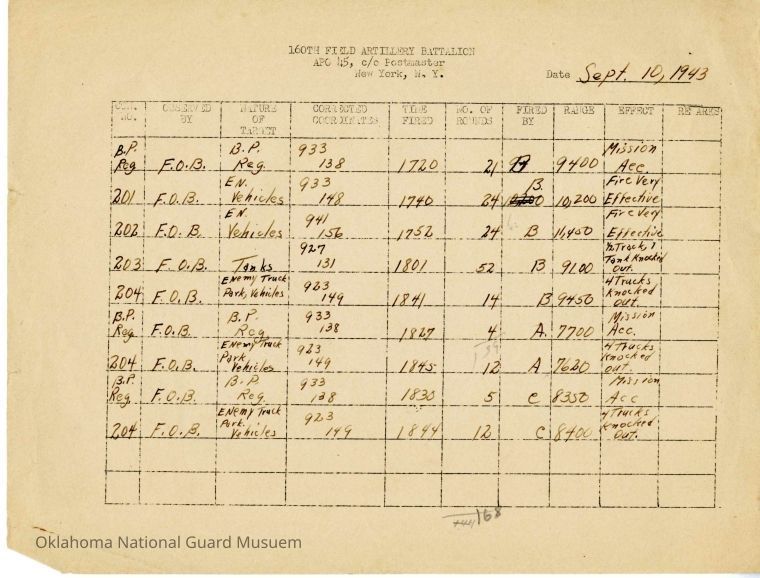 160TH FIELD ARTILLERY BATTALION
APO 45, c/o Postmaster
New York, N. Y.
Date Sept. 10, 1943
CON. NO. OBSERVED BY NATURE OF TARGET CORRECTED COORDINATES TIME FIRED NO. OF ROUNDS FIRED BY RANGE EFFECT REMARKS
B.P. Reg F.O.B. B.P. Reg. 933 138 1720 21 9400 Mission Acc.
201 F.O.B. EN. Vehicles 933 148 1740 24 B. 10,200 Fire Very Effective
202 F.O.B. EN. Vehicles 941 156 1752 24 B 11,450 Fire Very Effective
203 F.O.B. Tanks 927 131 1801 52 B 9100 ½ Track, 1 Tank Knocked Out.
204 F.O.B. Enemy Truck Park, Vehicles 923 149 1841 14 B 9450 4 Trucks Knocked out.
B.P. Reg F.O.B. B.P. Reg 933 138 1827 4 A. 7700 Mission Acc.
204 F.O.B. Enemy Truck Park, Vehicles 923 149 1845 12 A 7620 4 Trucks Knocked out.
B.P. Reg. F.O.B. B.P. Reg. 933 138 1830 5 C 8350 Mission Acc
204 F.O.B. Enemy Truck Park, Vehicles 923 149 1844 12 C 8400 4 Trucks Knocked Out.
168
Oklahoma National Guard Musuem